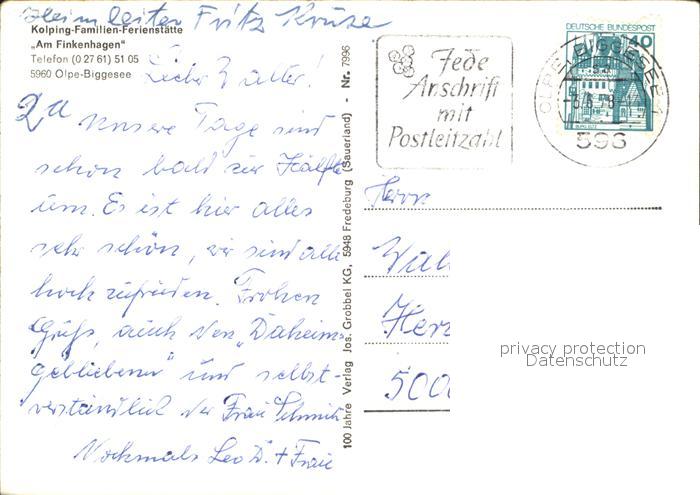 Heimleiter Fritz Kruse
Kolping-Familien-Ferienstätte
„Am Finkenhagen"
Telefon (0 27 61) 51 05
5960 Olpe-Biggesee
Lieber Walter!
Unsere Tage sind
schon bald zur Hälfte
um. Es ist hier alles
sehr schön, wir sind alle
hoch zufrieden. Frohen
Gruß, auch den „Daheim-
gebliebenen" und selbst-
verständlich der Frau Schmitz
Nochmals Leo D. + Frau
100 Jahre Verlag Jos. Grobbel KG, 5948 Fredeburg (Sauerland) - Nr. 7996
Jede
Anschrift
mit
Postleitzahl
DEUTSCHE BUNDESPOST
40
OLPE-BIGGESEE
596
Herrn
Wal
Her
500
privacy protection
Datenschutz